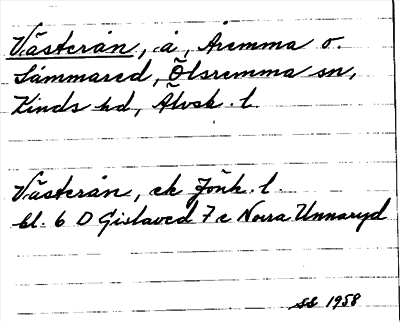 Västerån, å, Aremma o.
Sämmared, Ölsremma sn,
Kinds hd, Älvsb. l.
Västerån, ek Jönk. l.
bl. 6 D Gislaved 7 c Norra Unnaryd
SS 1958